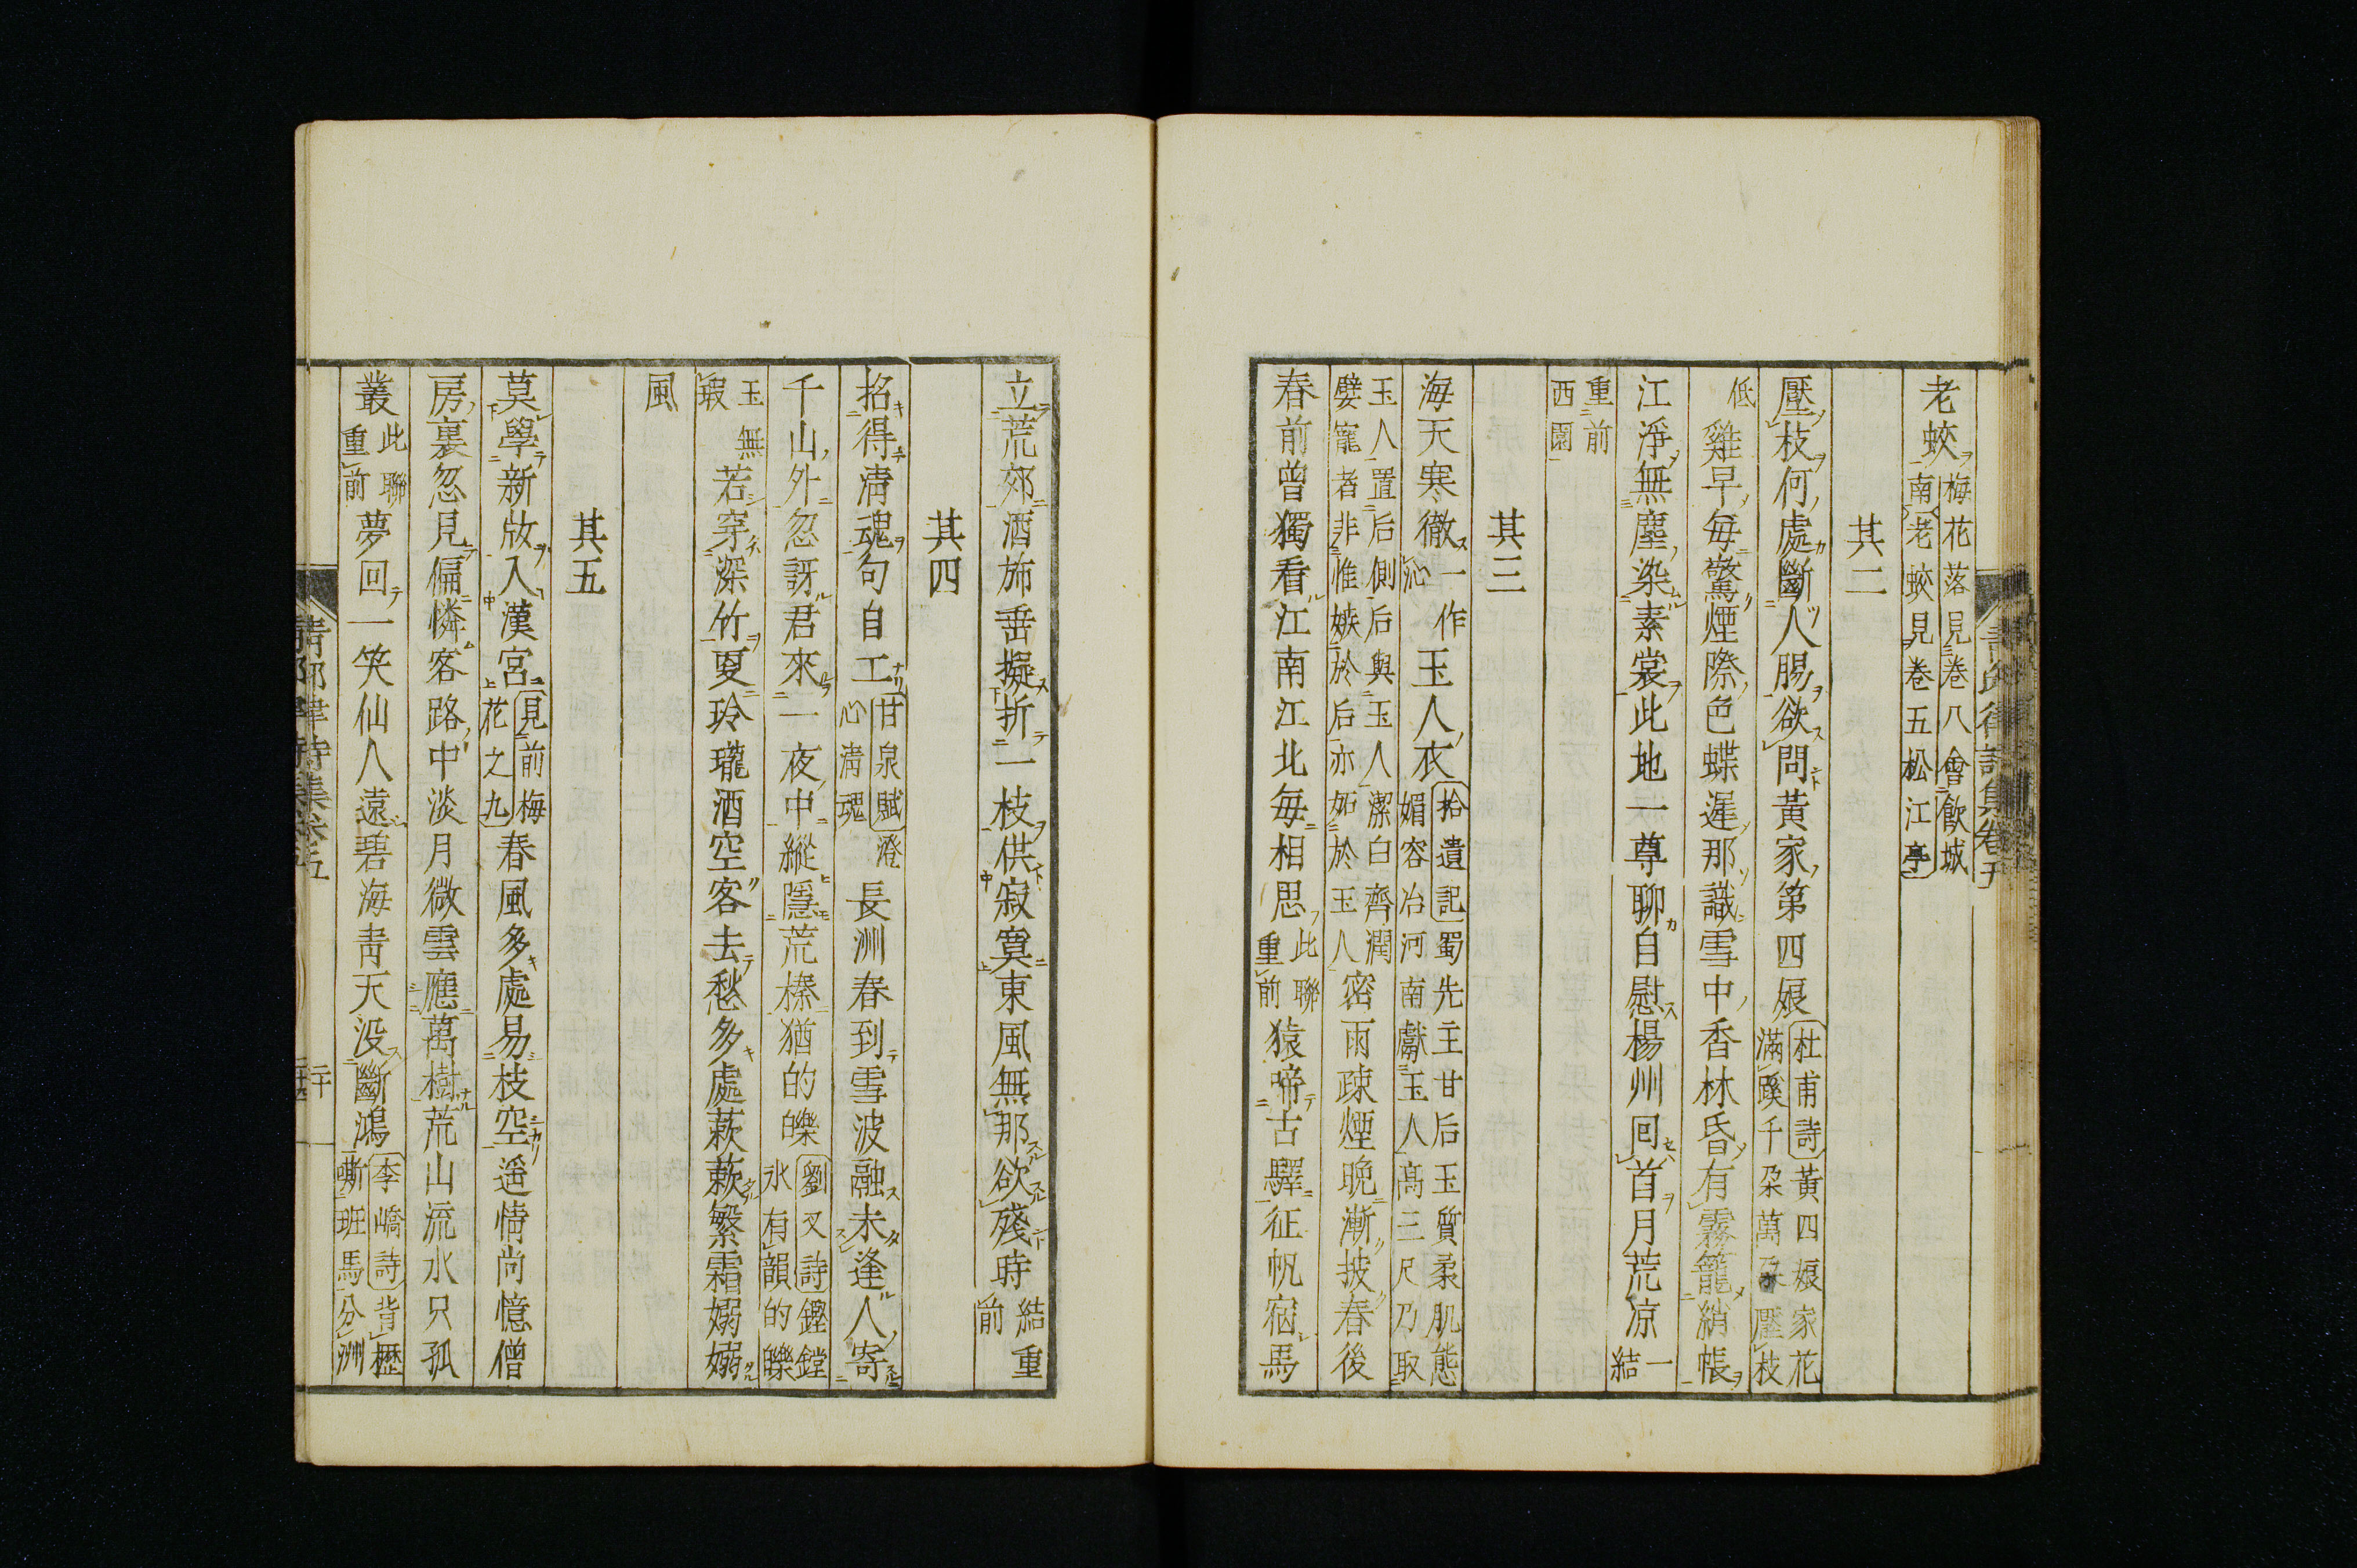 老蛟梅花落見卷八會飮城南老蛟見卷五松江亭
其二
壓枝何處斷人腸欲問黃家第四娘杜甫詩黃四娘家花滿蹊千朶萬朶壓枝
低雞早每驚煙際色蝶遲那識雪中香林昏有霧籠綃帳
江淨無塵染素裳此地一尊聊自慰楊州回首月荒凉一結
重前西園
其三
海天寒徹一作沁玉人衣拾遺記蜀先主甘后玉質柔肌態媚容冶河南獻玉人高三尺乃取
玉人置后側后與玉人潔白齊潤嬖寵者非惟嫉於后亦妬於玉人密雨疎煙晩漸披春後
春前曾獨看江南江北每相思此聯重前猿啼古驛征帆宿馬
立荒郊酒斾垂擬折一枝供寂寞東風無那欲殘時結重前
其四
招得淸魂句自工甘泉賦澄心淸魂長洲春到雪波融未逢人寄
千山外忽訝君來一夜中縱隱荒榛猶的皪劉叉詩鏗鏜氷有韻的皪
玉無瑕若穿深竹夏玲瓏酒空客去愁多處蔌蔌繁霜嫋嫋
風
其五
莫學新妝入漢宮見前梅花之九春風多處易枝空遥情尚憶僧
房裏忽見偏憐客路中淡月微雲應萬樹荒山流水只孤
叢此聯重前夢回一笑仙人遠碧海靑天沒斷鴻李嶠詩背櫪嘶班馬分洲
靑邱律詩集卷五